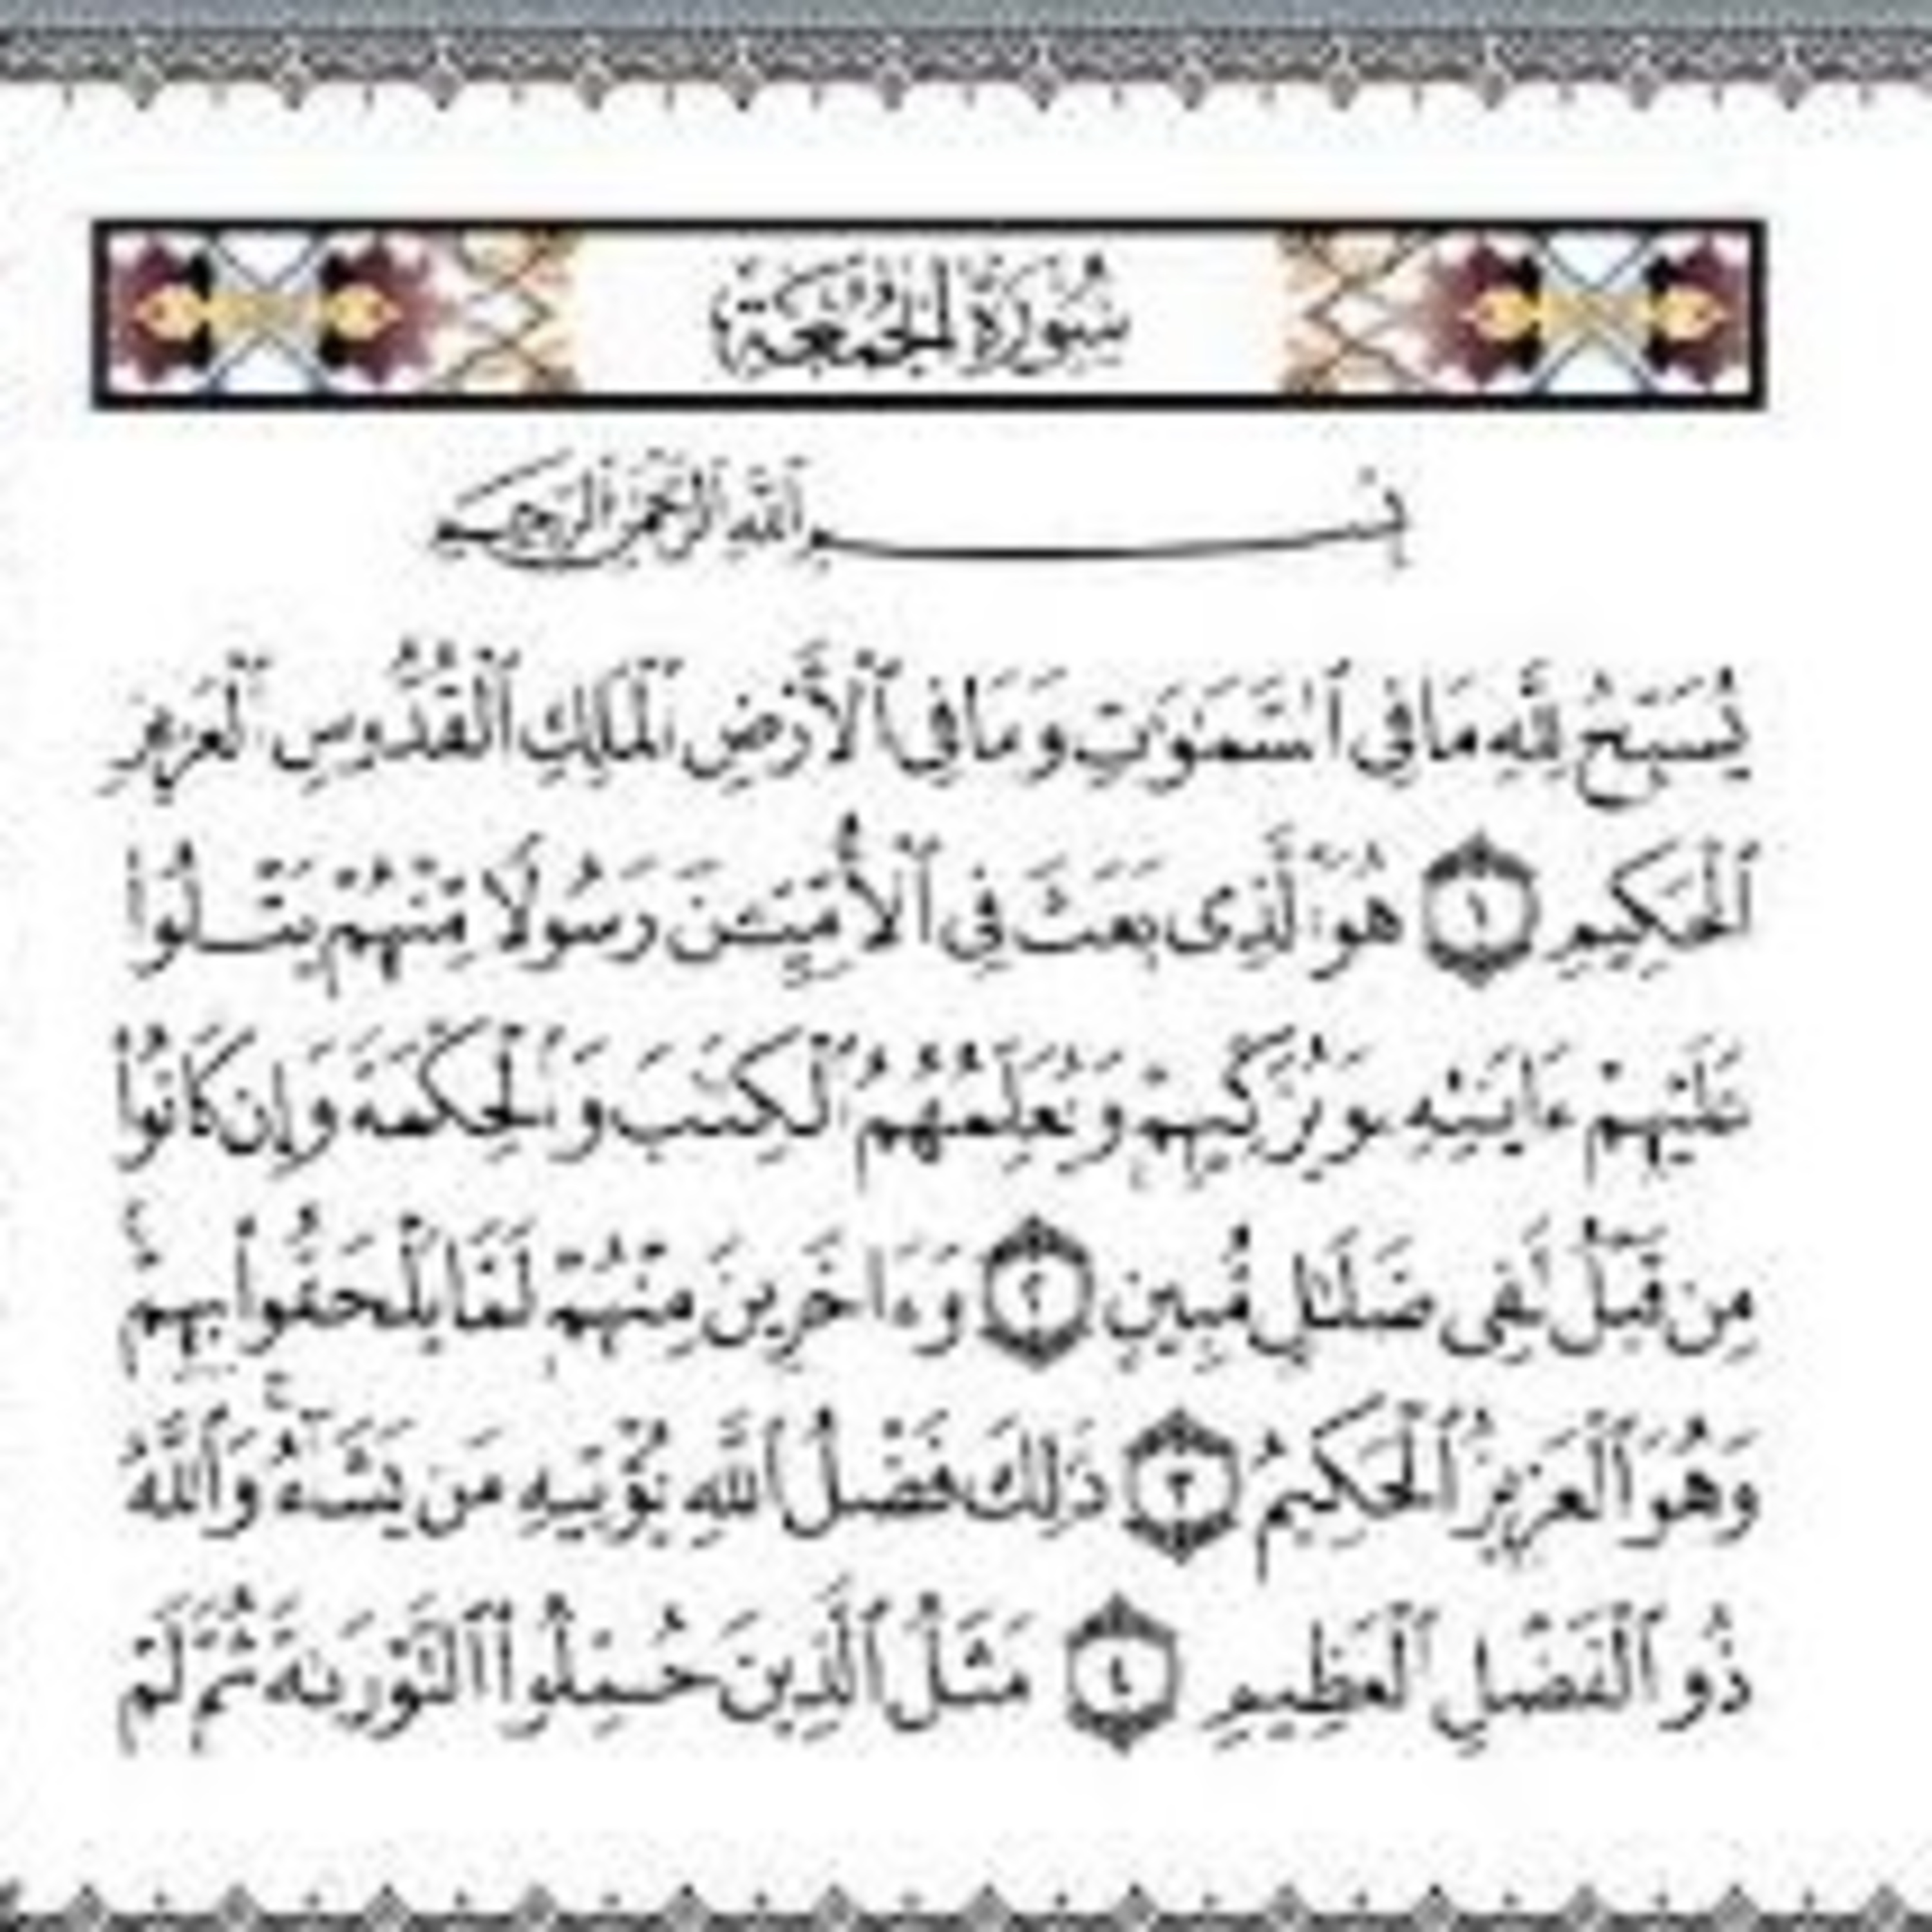 سُورَةُ الجُمُعَةِ
بِسْمِ اللَّهِ الرَّحْمَٰنِ الرَّحِيمِ
يُسَبِّحُ لِلَّهِ مَا فِى ٱلسَّمَٰوَٰتِ وَمَا فِى ٱلْأَرْضِ ٱلْمَلِكِ ٱلْقُدُّوسِ ٱلْعَزِيزِ
ٱلْحَكِيمِ ١ هُوَ ٱلَّذِى بَعَثَ فِى ٱلْأُمِّيِّـۧنَ رَسُولًا مِّنْهُمْ يَتْلُوا۟
عَلَيْهِمْ ءَايَٰتِهِۦ وَيُزَكِّيهِمْ وَيُعَلِّمُهُمُ ٱلْكِتَٰبَ وَٱلْحِكْمَةَ وَإِن كَانُوا۟
مِن قَبْلُ لَفِى ضَلَٰلٍ مُّبِينٍ ٢ وَءَاخَرِينَ مِنْهُمْ لَمَّا يَلْحَقُوا۟ بِهِمْ ۚ
وَهُوَ ٱلْعَزِيزُ ٱلْحَكِيمُ ٣ ذَٰلِكَ فَضْلُ ٱللَّهِ يُؤْتِيهِ مَن يَشَآءُ ۚ وَٱللَّهُ
ذُو ٱلْفَضْلِ ٱلْعَظِيمِ ٤ مَثَلُ ٱلَّذِينَ حُمِّلُوا۟ ٱلتَّوْرَىٰةَ ثُمَّ لَمْ